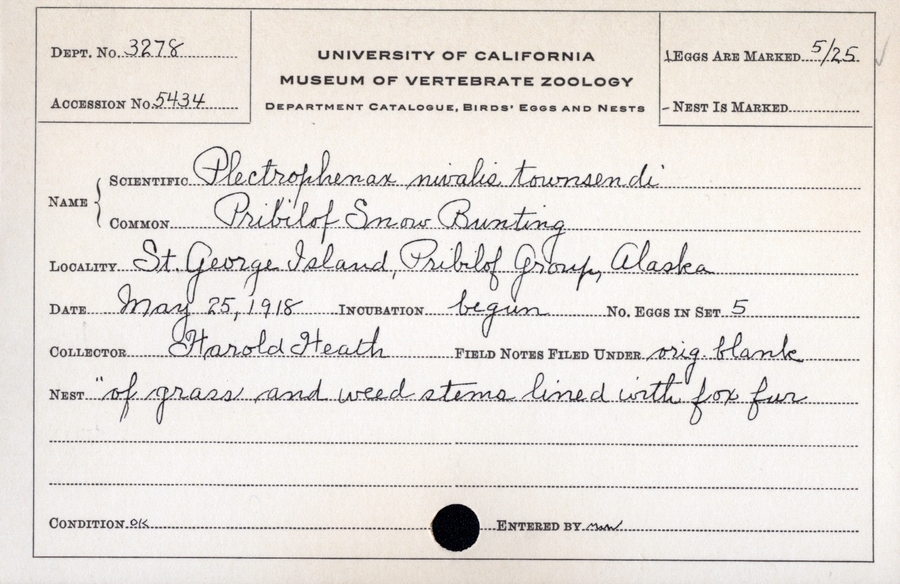 Dept. No. 3278
Accession No. 5434
University of California
Museum of Vertebrate Zoology
Department Catalogue, Birds' Eggs and Nests
Eggs Are Marked 5/25
Nest Is Marked
Name
Scientific Plectrophenax nivalis townsendi
Common Pribilof Snow Bunting
Locality St. George Island, Pribilof Group, Alaska
Date May 25, 1918 Incubation begun No. Eggs in Set 5
Collector Harold Heath Field Notes Filed Under orig. blank
Nest "of grass and weed stems lined with fox fur
Condition ok Entered by